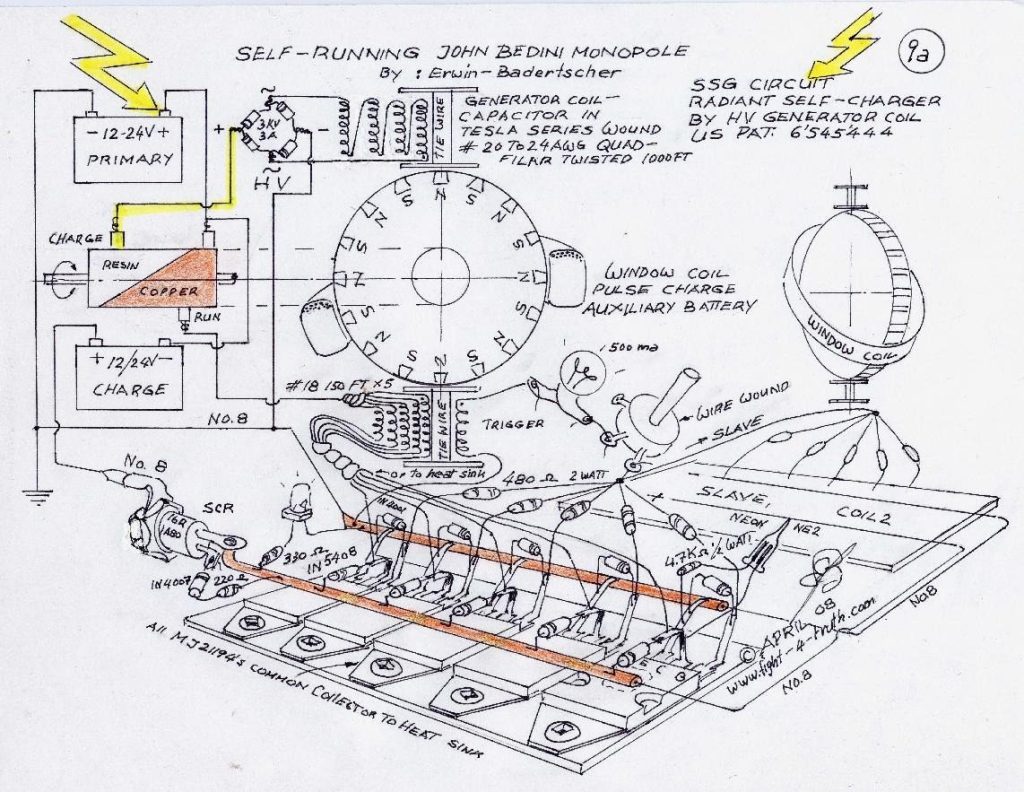 SELF-RUNNING JOHN BEDINI MONOPOLE
By : Erwin-Badertscher
9a
SSG CIRCUIT
RADIANT SELF-CHARGER
BY HV GENERATOR COIL
US PAT. 6'545'444
GENERATOR COIL-
CAPACITOR IN
TESLA SERIES WOUND
# 20 TO 24 AWG QUAD-
FILAR TWISTED 1000FT
- 12-24V +
PRIMARY
+
~
3KV
3A
-
~
HV
TIE WIRE
CHARGE
RESIN
COPPER
RUN
+ 12/24V -
CHARGE
N
S
N
S
N
S
N
S
N
S
N
S
N
S
N
S
WINDOW COIL
PULSE CHARGE
AUXILIARY BATTERY
WINDOW COIL
500 ma
# 18 150 FT x5
NO.8
TIE WIRE
TRIGGER
WIRE WOUND
SLAVE
or to heat sink
480 Ω 2 WATT
No. 8
SCR
16R
A80
IN4001
SLAVE,
COIL2
NEON NE2
4.7KΩ 1/2 WATT
330 Ω
IN5408
IN4007
220 Ω
E C
All MJ21194's COMMON COLLECTOR TO HEAT SINK
© APRIL 08
www.light-4-truth.com
NO.8
NO.8